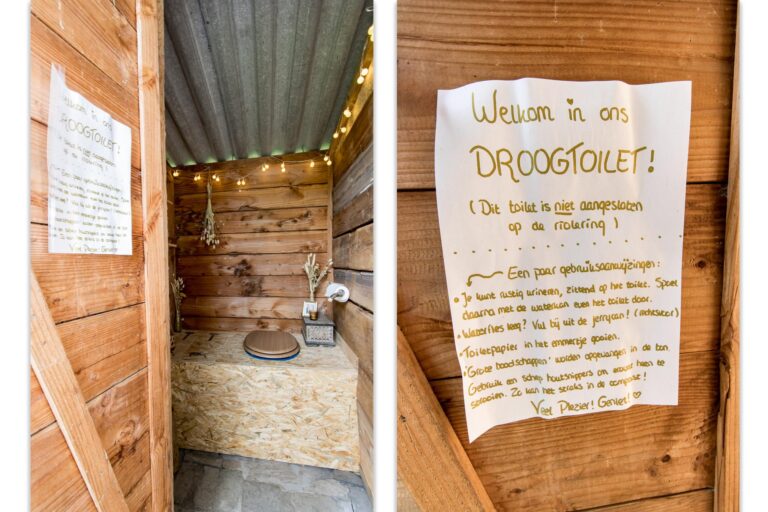 Welkom in ons
DROOGTOILET!
(Dit toilet is niet aangesloten
op de riolering!)
Een paar gebruiksaanwijzingen:
• Je kunt rustig urineren, zittend op het toilet. Spoel
daarna met de waterkan even het toilet door.
• Waterfles leeg? Vul bij uit de jerrycan! (rechtsachter)
• Toiletpapier in het emmertje gooien.
• 'Grote boodschappen' worden opgevangen in de ton.
Gebruik een schep houtsnippers om erover heen te
strooien. Zo kan het straks in de compost!
Veel Plezier! Geniet!